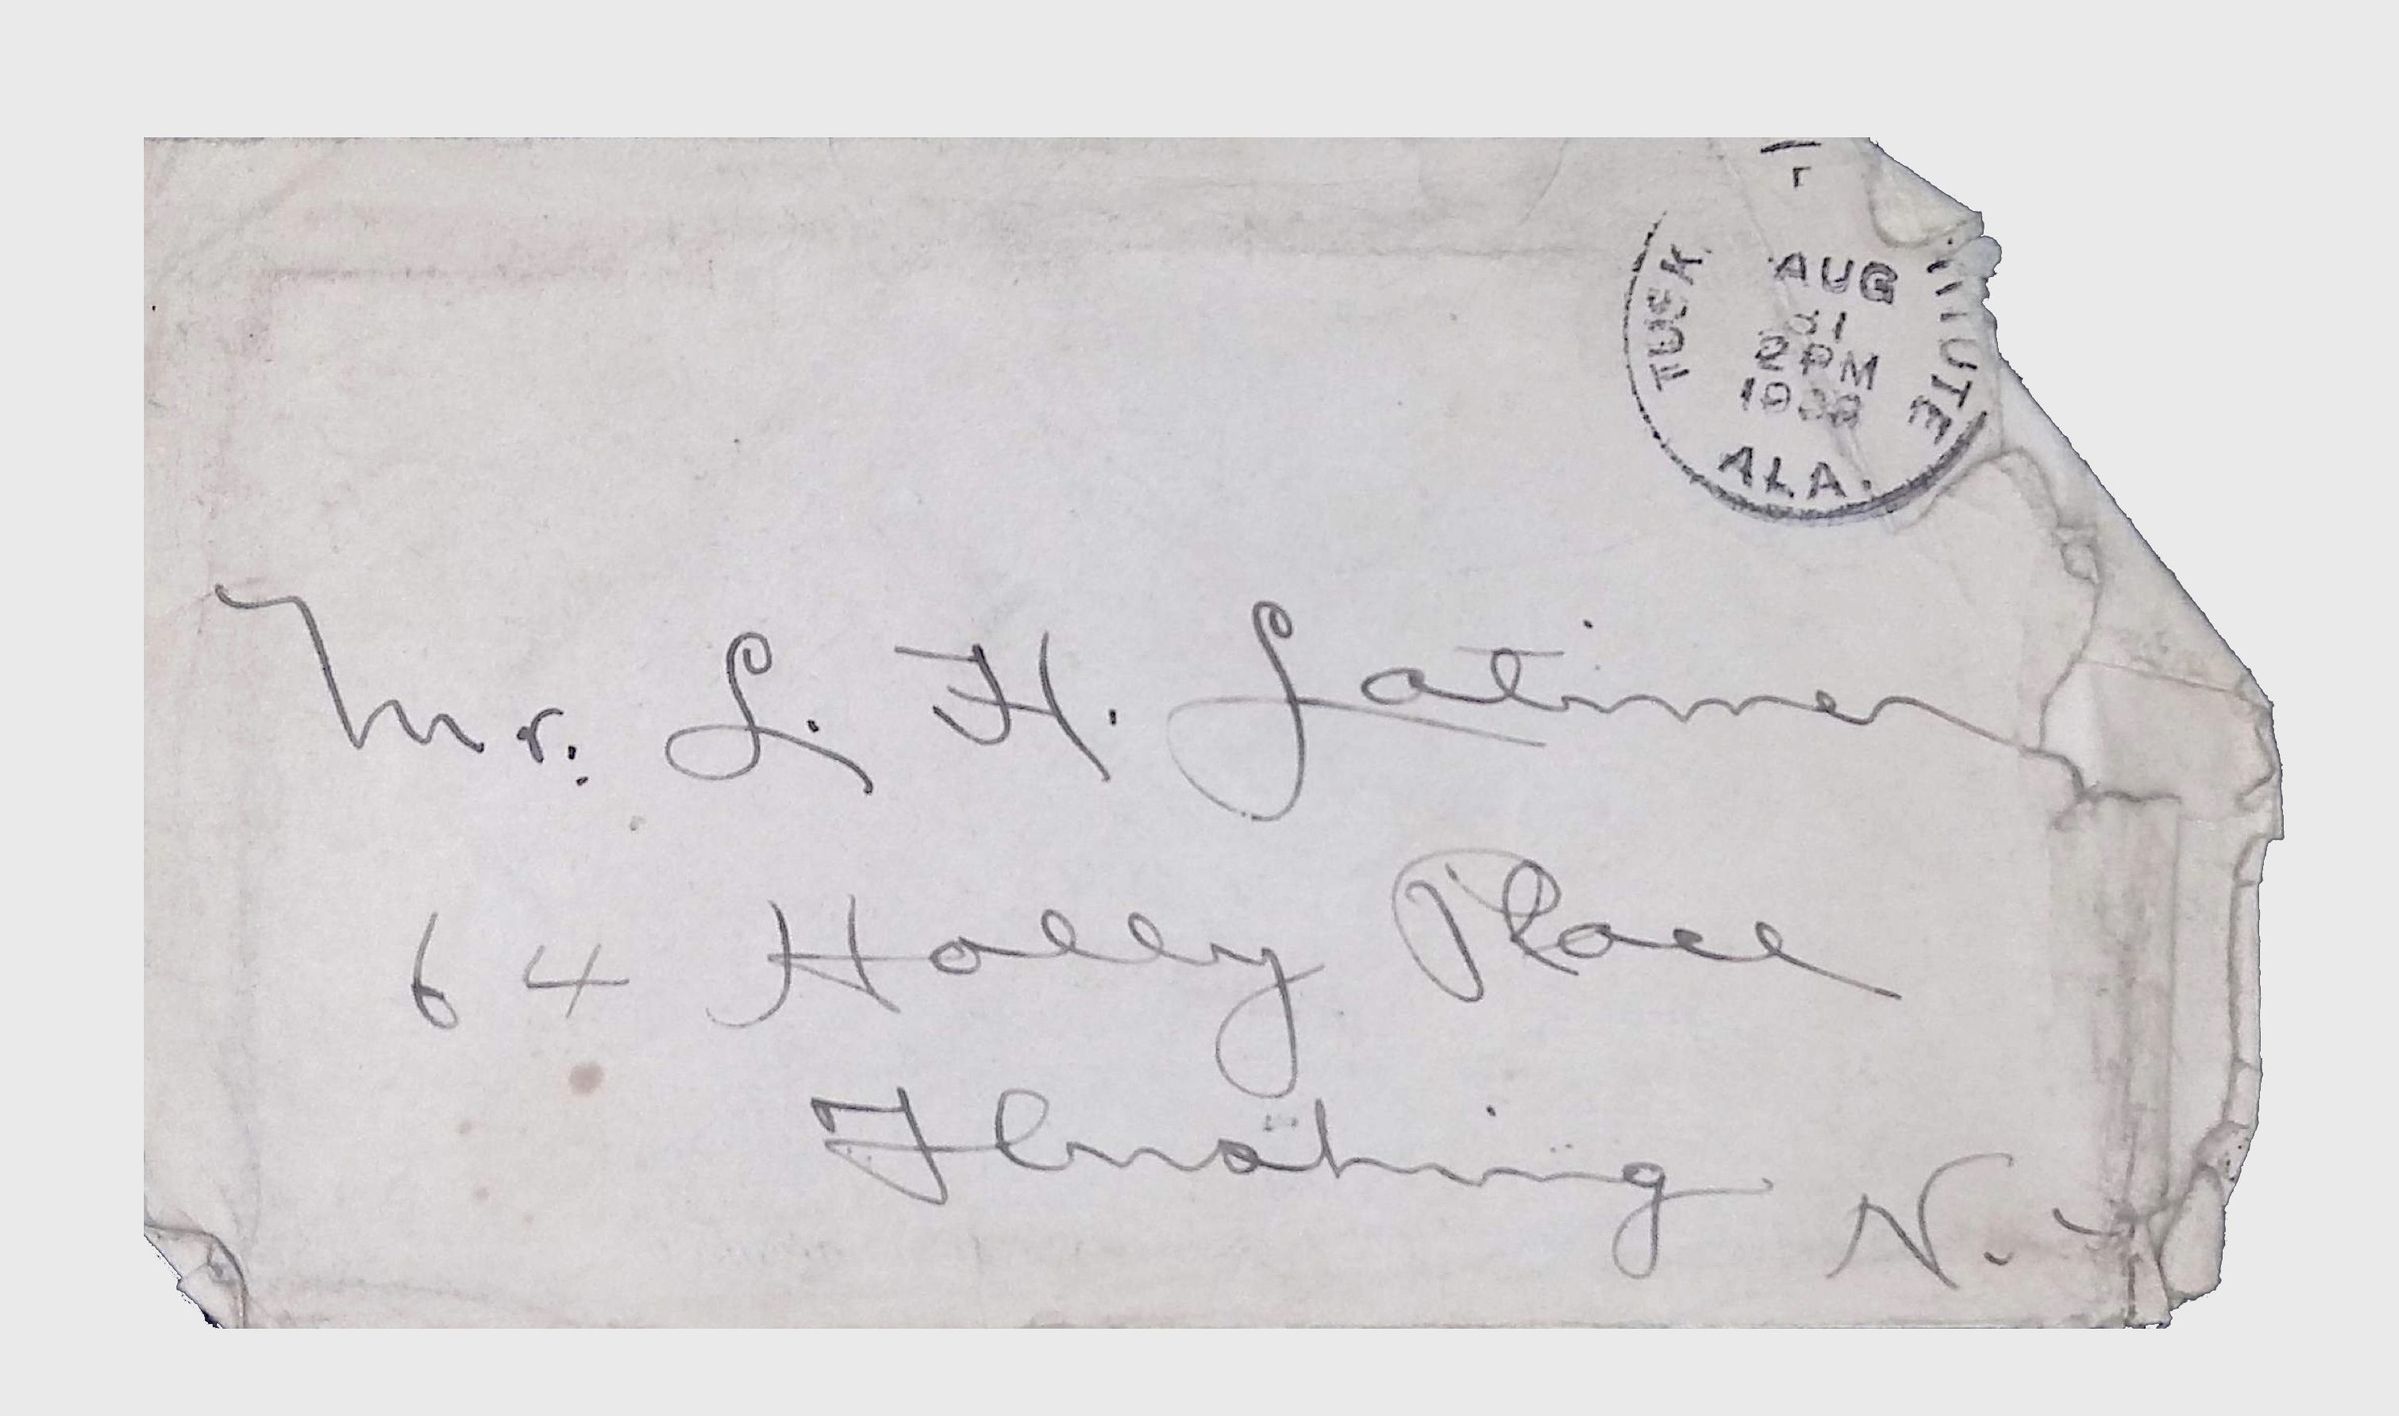 TUSK ITUTE
AUG
21
2 PM
ALA.
Mr. L. H. Latimer
64 Holly Place
Flushing N.Y